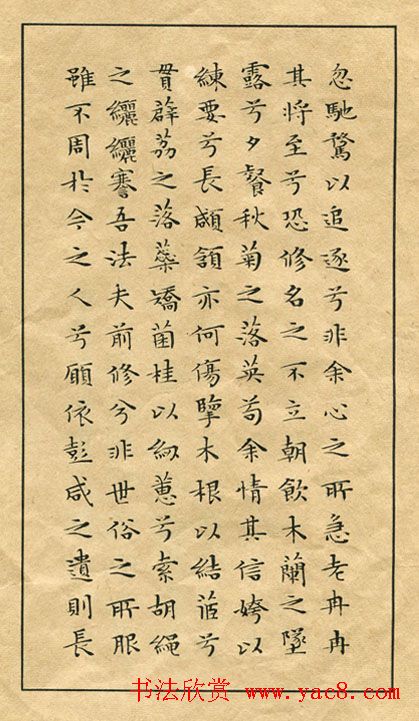 忽馳騖以追逐兮非余心之所急老冉冉
其將至兮恐修名之不立朝飲木蘭之墜
露兮夕餐秋菊之落英苟余情其信姱以
練要兮長顑頷亦何傷擥木根以結茝兮
貫薜荔之落蘂矯菌桂以紉蕙兮索胡繩
之纚纚謇吾法夫前修兮非世俗之所服
雖不周於今之人兮願依彭咸之遺則長
书法欣赏 www.yac8.com